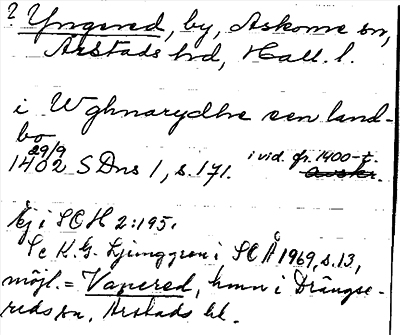 ? Yngered, by, Askome sn,
Årstads hd, Hall. l.
i Wghnarydhe een land-
bo
29/9
1402 SDns 1, s. 171. i vid. fr. 1400-t.
avskr.
Ej i SOH 2:195.
Se K.G. Ljunggren i SOÅ 1969, s. 13,
möjl. = Vapered, hmn i Drängse-
reds sn, Årstads hd.